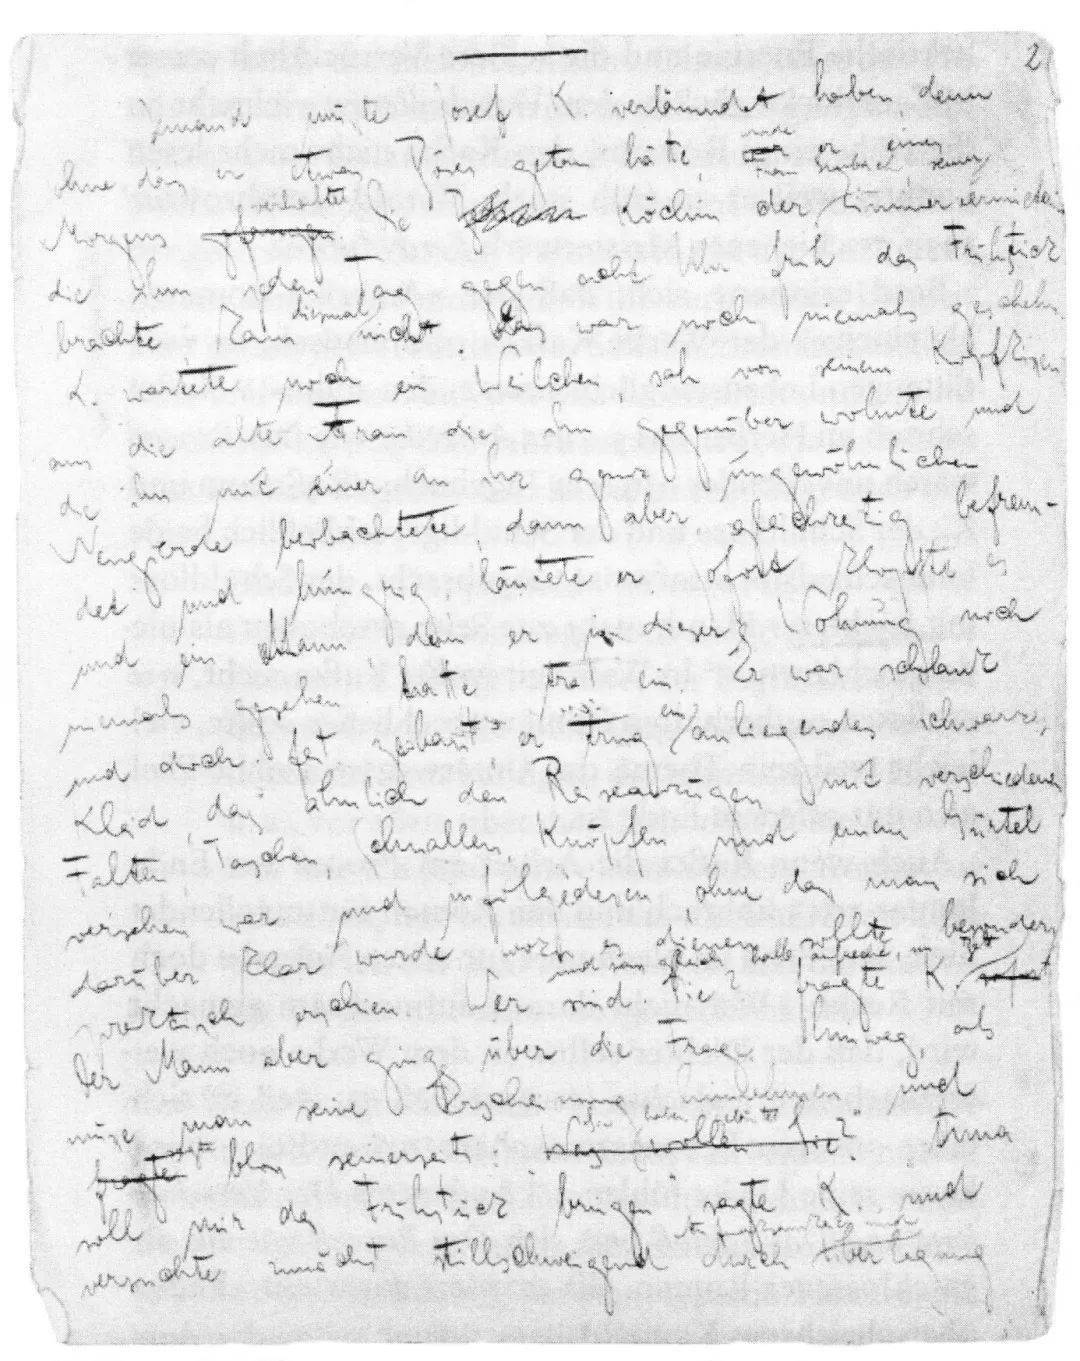 2
Jemand mußte Josef K. verläumdet haben, denn
ohne daß er etwas Böses getan hätte, wurde er eines
Frau Grubach seiner
Morgens gefangen verhaftet. Die Köchin der Zimmervermieterin,
die ihm jeden Tag gegen acht Uhr früh das Frühstück
brachte kam diesmal nicht. Das war noch niemals geschehn.
K. wartete noch ein Weilchen, sah von seinem Kopfkissen
aus die alte Frau die ihm gegenüber wohnte und
die ihn mit einer an ihr ganz ungewöhnlichen
Neugierde beobachtete, dann aber, gleichzeitig befrem-
det und hungrig, läutete er. Sofort klopfte es
und ein Mann, den er in dieser Wohnung noch
niemals gesehen hatte trat ein. Er war schlank
und doch fest gebaut, er trug ein anliegendes schwarzes
Kleid, das ähnlich den Reiseanzügen mit verschiedenen
Falten, Taschen, Schnallen, Knöpfen und einem Gürtel
versehen war und infolgedessen, ohne daß man sich
darüber klar wurde, wozu es dienen sollte, besonders
und saß gleich halb aufrecht im Bett
praktisch erschien. "Wer sind Sie?" fragte K. sofort
Der Mann aber ging über die Frage hinweg, als
müsse man seine Erscheinung hinnehmen und
Sie haben geläutet
fragte sagte bloß seinerseits: "Was wollen Sie?" "Anna
soll mir das Frühstück bringen" sagte K. und
versuchte zunächst stillschweigend durch Überlegung